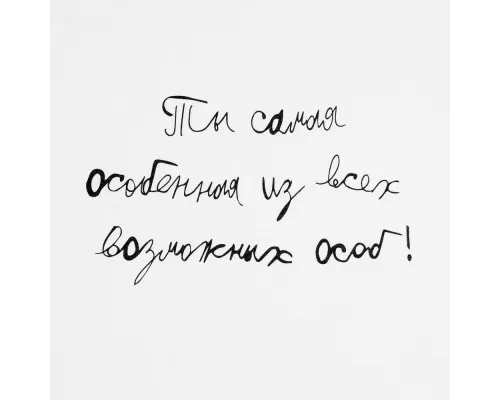 Ты самая
особенная из всех
возможных особ!